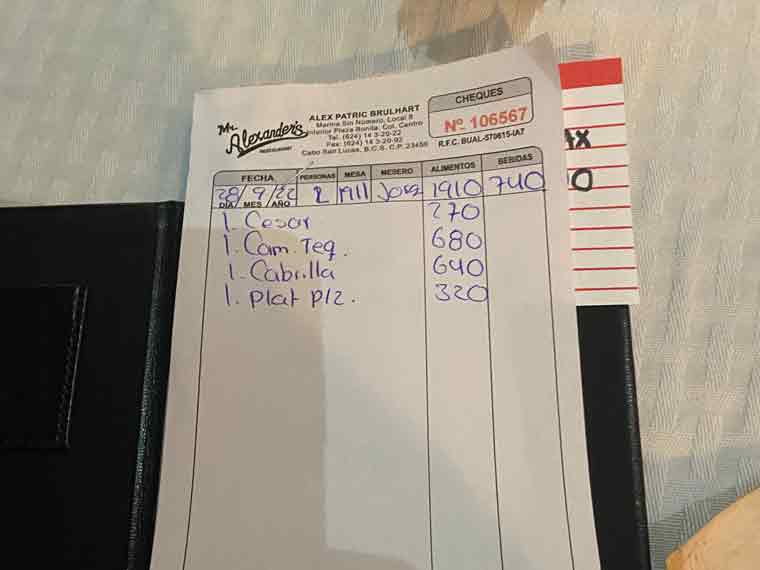 Mr. Alexander's
RESTAURANT
ALEX PATRIC BRULHART
Marina Sin Número, Local 8
Interior Plaza Bonita, Col. Centro
Tel. (624) 14 3-20-22
Fax: (624) 14 3-20-92
Cabo San Lucas, B.C.S. C.P. 23450
CHEQUES
Nº 106567
R.F.C. BUAL-570615-IA7
FECHA PERSONAS MESA MESERO ALIMENTOS BEBIDAS
28/9/22 2 1911 Jorg 1910 740
DIA/ MES /AÑO
1. Cesar 270
1. Cam. Teq. 680
1. Cabrilla 640
1. Plat Plz. 320